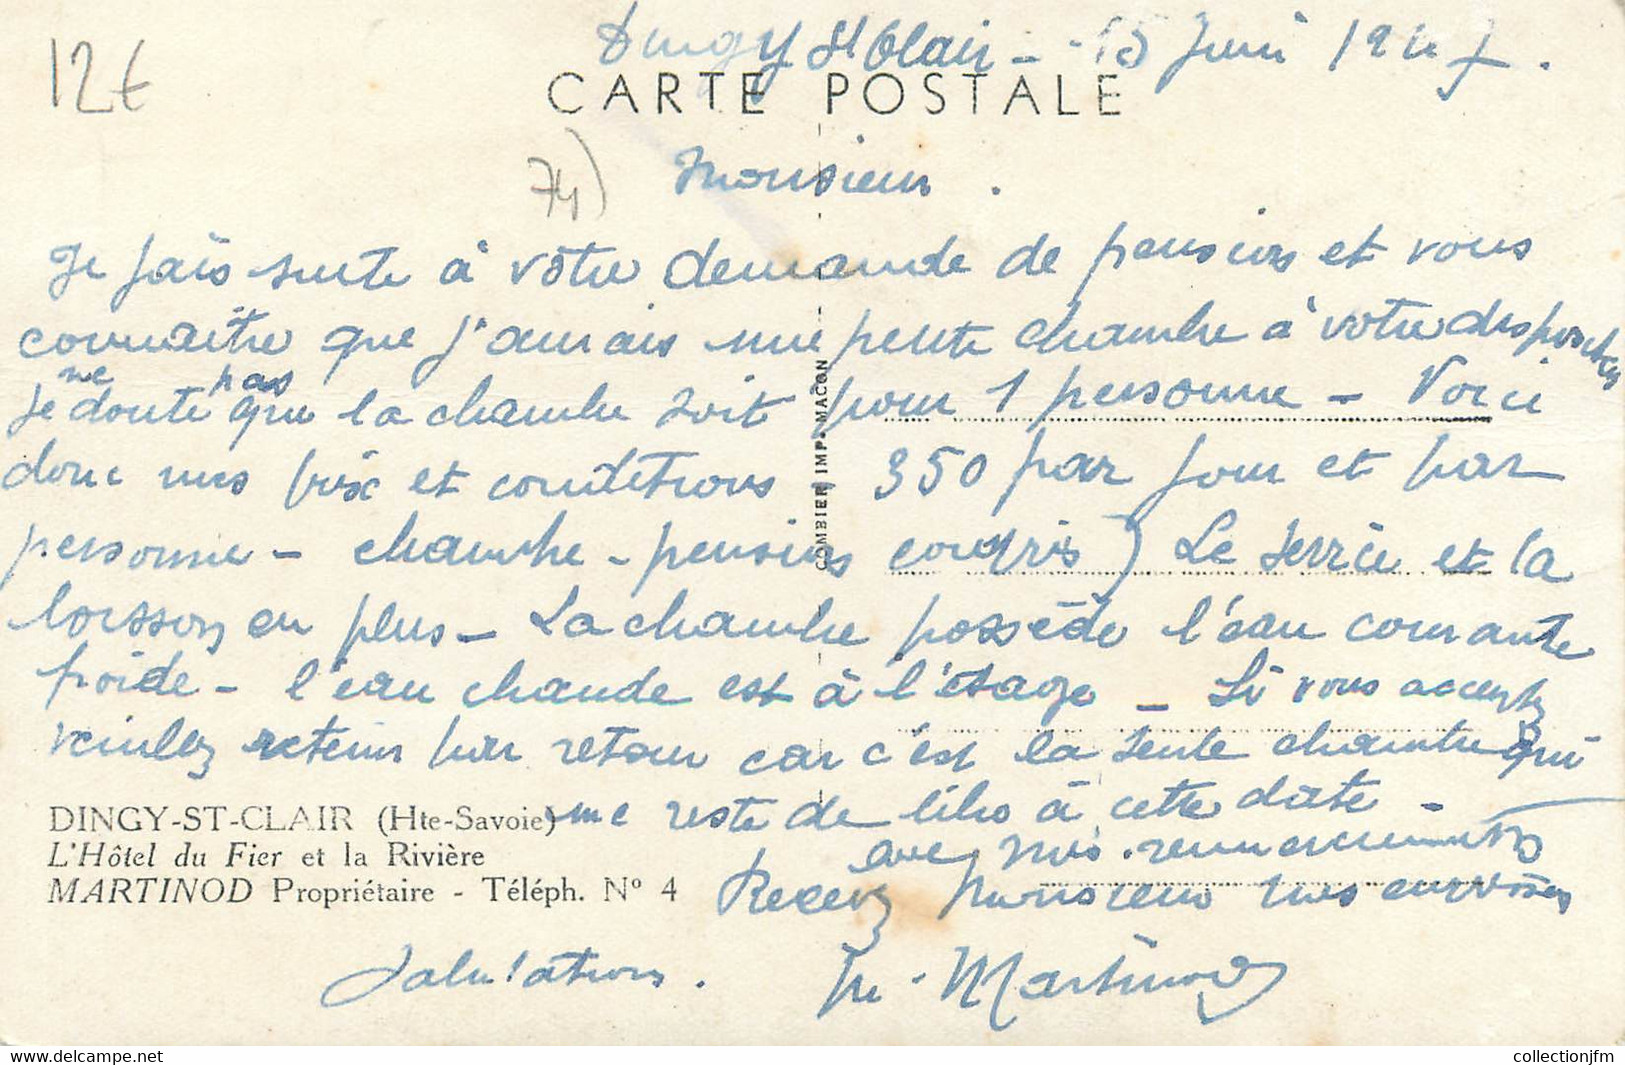 Dingy St Clair - 15 Juin 1947.
12€
CARTE POSTALE
74)
Monsieur.
Je fais suite à vôtre demande de pension et vous
connaitre que j'aurais une petite chambre à votre disposition
je ne doute pas que la chambre soit pour 1 personne - Voici
donc mes prix et conditions 350 par jour et par
personne - chambre - pension compris) Le service et la
boisson en plus - La chambre possède l'eau courante
froide - l'eau chaude est à l'étage - Si vous acceptez
veuillez retenir par retour car c'est la seule chambre qui
me reste de libre à cette date -
avec mes remerciements
Recevez Monsieur mes empressées
Salutations.
Martinod
COMBIER IMP. MACON
DINGY-ST-CLAIR (Hte-Savoie)
L'Hôtel du Fier et la Rivière
MARTINOD Propriétaire - Téléph. N° 4
www.delcampe.net
collectionjfm